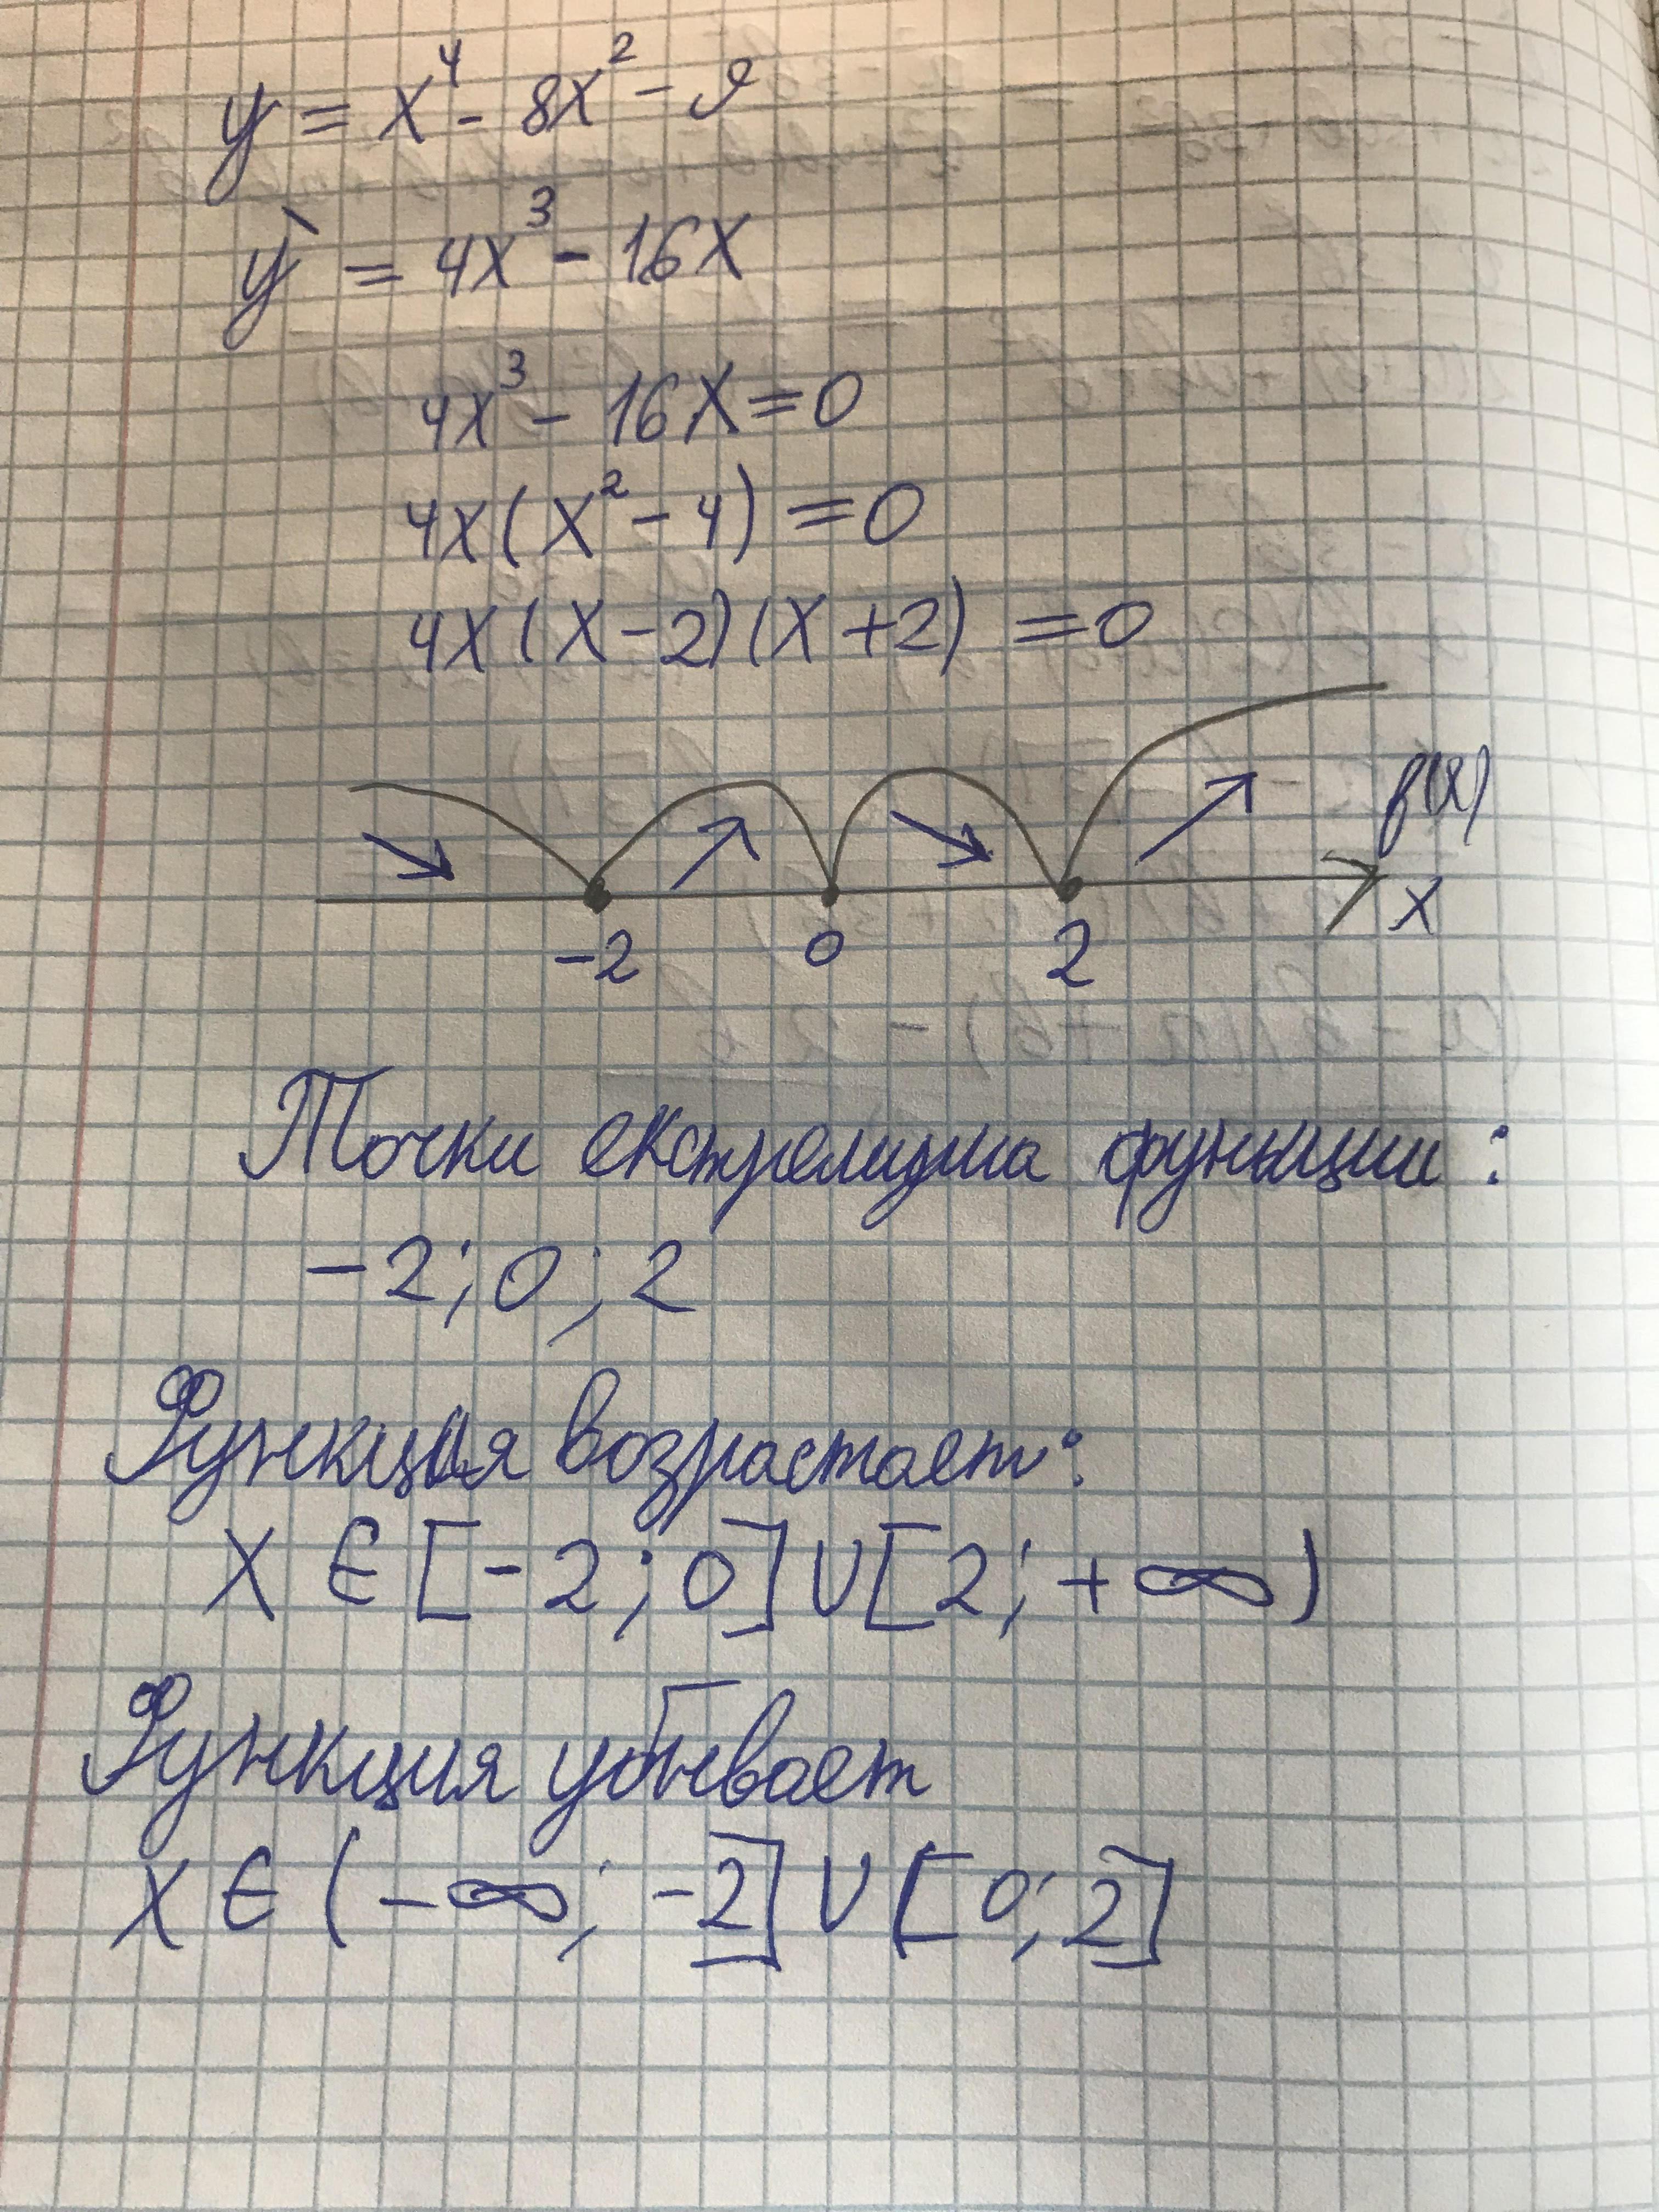 y = x⁴ - 8x² - 9
y` = 4x³ - 16x
4x³ - 16x = 0
4x(x² - 4) = 0
4x(x - 2)(x + 2) = 0
f(x)
x
-2 0 2
Точки екстремума функции :
-2; 0; 2
Функция возрастает:
x ∈ [-2; 0] ∪ [2; +∞)
Функция убывает
x ∈ (-∞; -2] ∪ [0; 2]